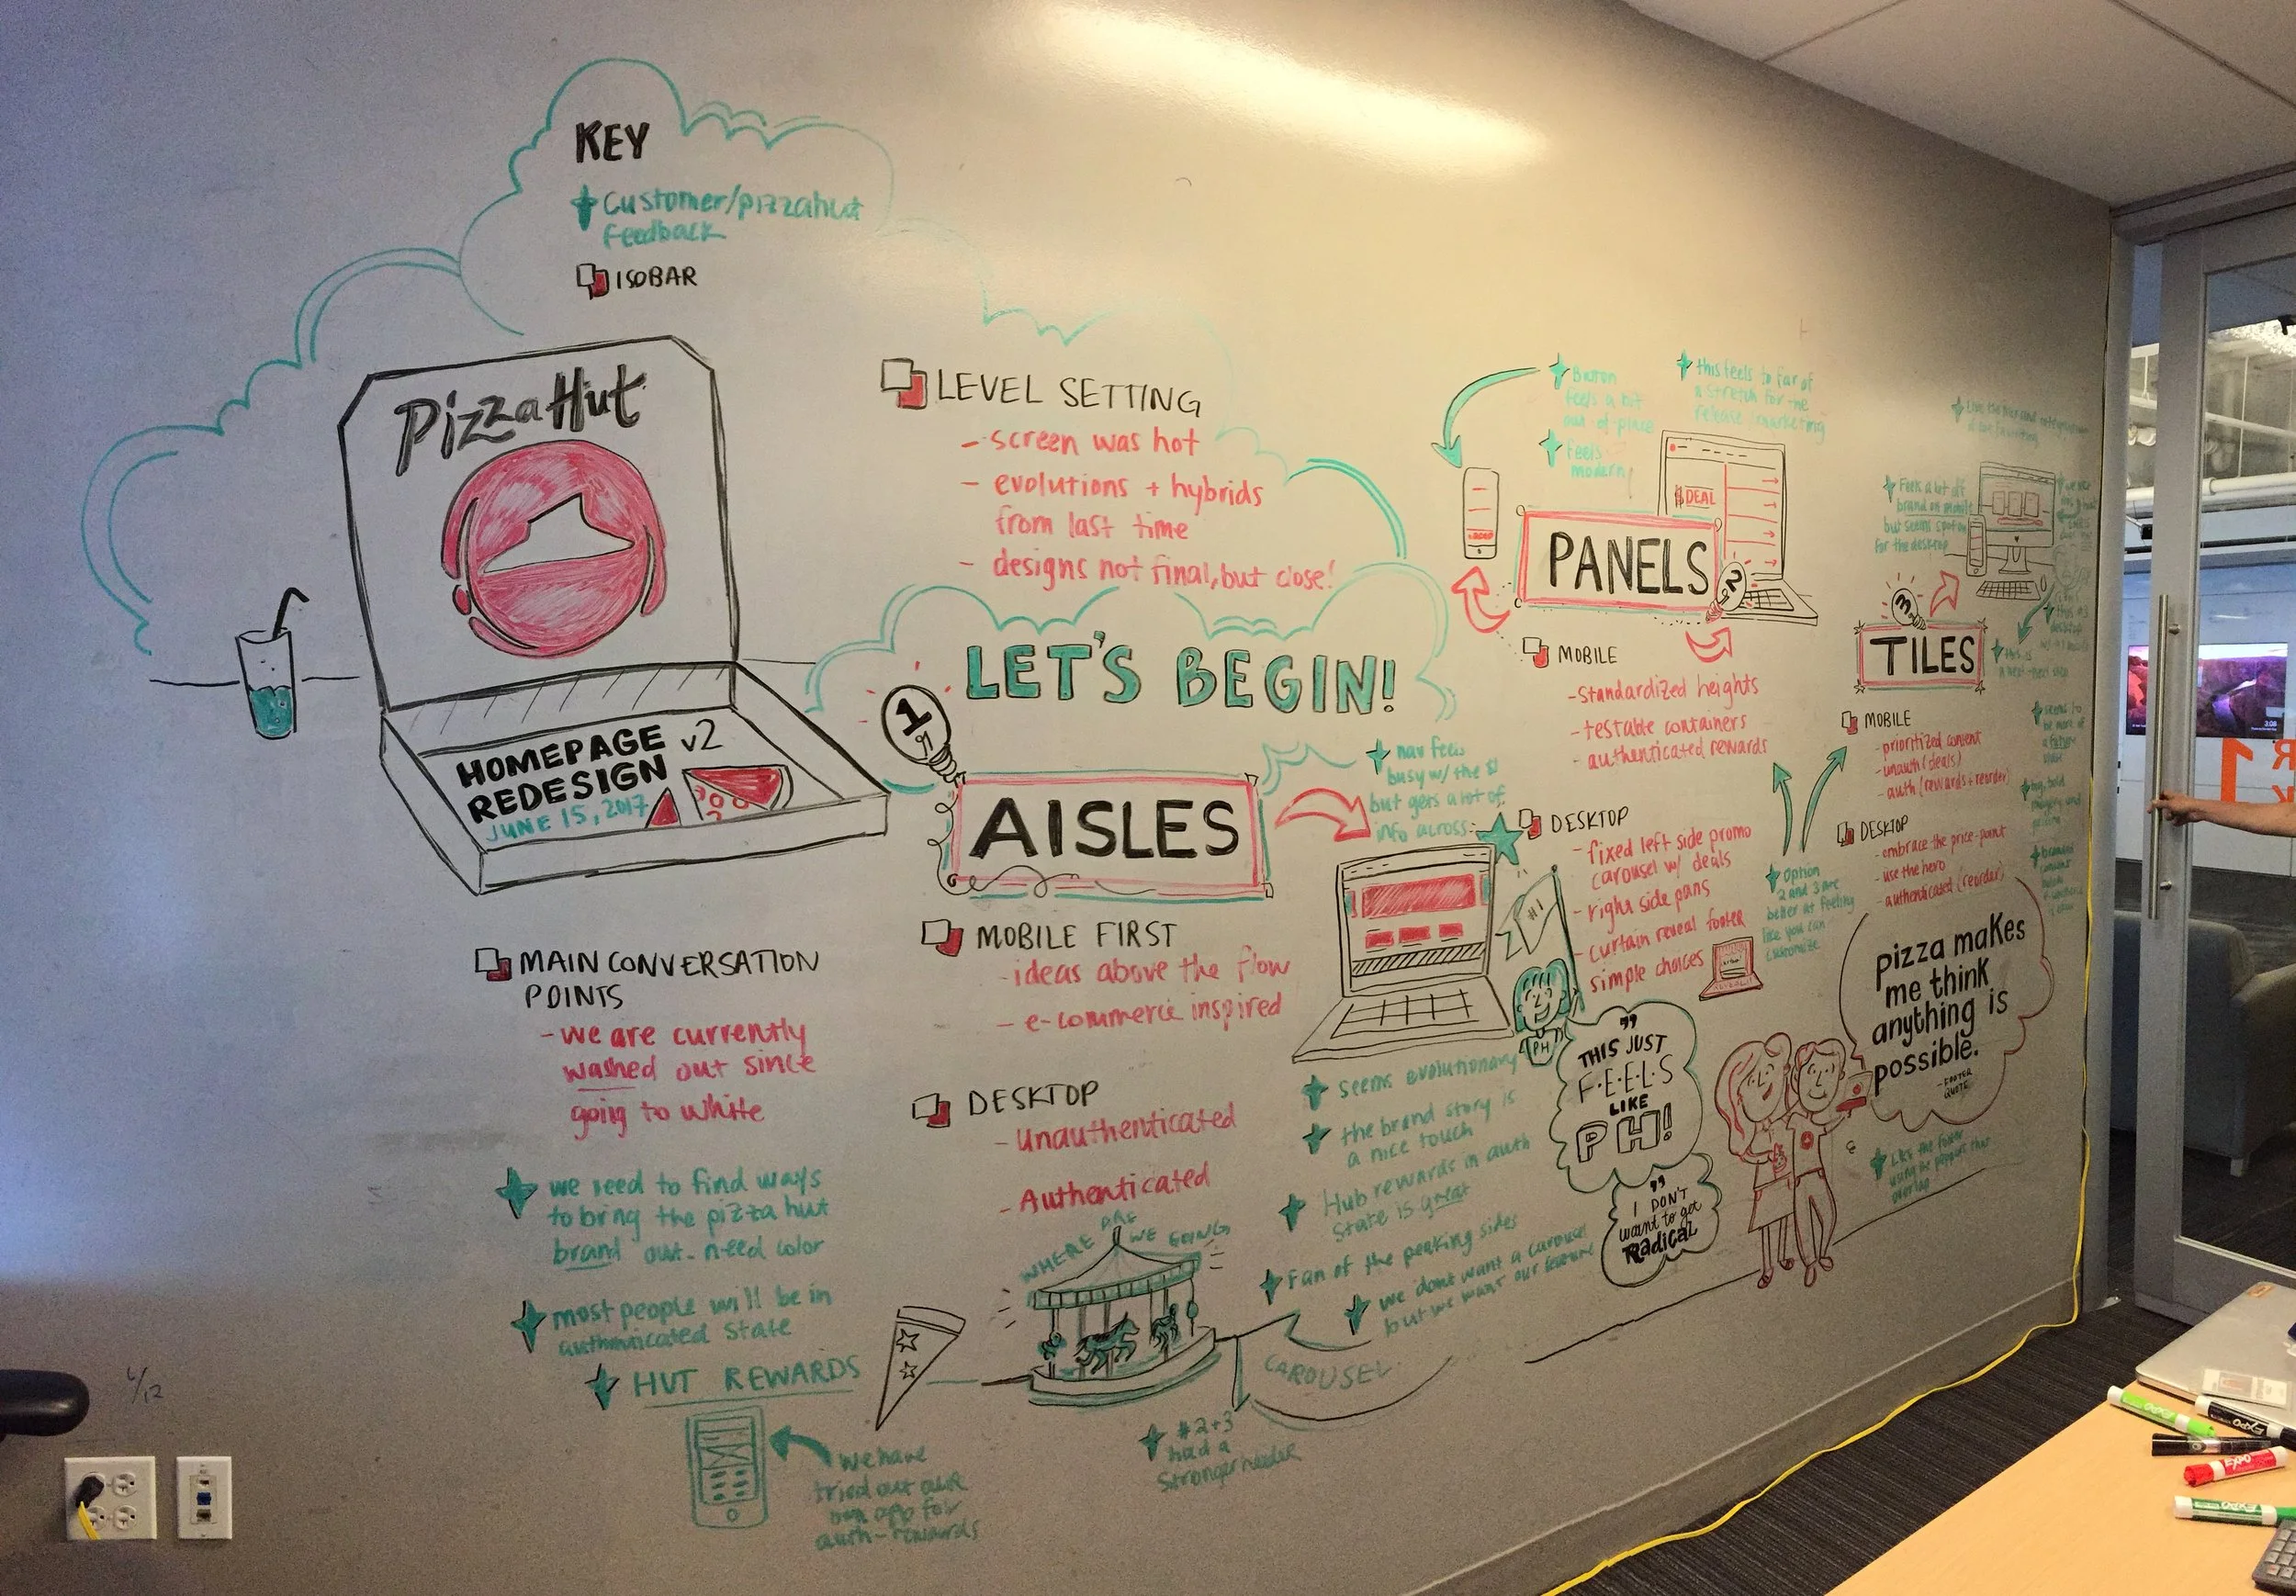 KEY
Customer/pizzahut
feedback
ISOBAR
Pizza Hut
HOMEPAGE v2
REDESIGN
JUNE 15, 2017
LEVEL SETTING
- screen was hot
- evolutions + hybrids
from last time
- designs not final, but close!
LET'S BEGIN!
MAIN CONVERSATION
POINTS
- we are currently
washed out since
going to white
we need to find ways
to bring the pizza hut
brand out - need color
most people will be in
authenticated state
HUT REWARDS
we have
tried out our
own app for
auth-rewards
1
AISLES
MOBILE FIRST
- ideas above the flow
- e-commerce inspired
DESKTOP
- Unauthenticated
- Authenticated
WHERE ARE WE GOING
CAROUSEL
#2+3
had a
stronger header
nav feels
busy w/ the
but gets a lot of
info across
#1
PH
seems evolutionary
the brand story is
a nice touch
Hub rewards in auth
state is great
Fan of the peaking sides
we dont want a carousel
but we want our feature
"THIS JUST
F·E·E·L·S
LIKE
PH!
"I DON'T
want to get
Radical
Button
feels a bit
out of place
feels
modern
this feels to far of
a stretch for the
release (marketing
$DEAL
PANELS
2
MOBILE
- standardized heights
- testable containers
- authenticated rewards
DESKTOP
- fixed left side promo
carousel w/ deals
- right side pans
- curtain reveal footer
simple choices
option
2 and 3 are
better at feeling
like you can
customize
Feels a bit off
brand on mobile
but seems spot on
for the desktop
3
TILES
MOBILE
- prioritized content
- unauth (deals)
- auth (rewards + reorder)
DESKTOP
- embrace the price-point
- use the hero
- authenticated (reorder)
seems to
be more of
a future
state
pizza makes
me think
anything is
possible.
- FOOTER
QUOTE
Like the footer
using the peppers that
overlap
6/12
EXPO
EXPO
EXPO
EXPO